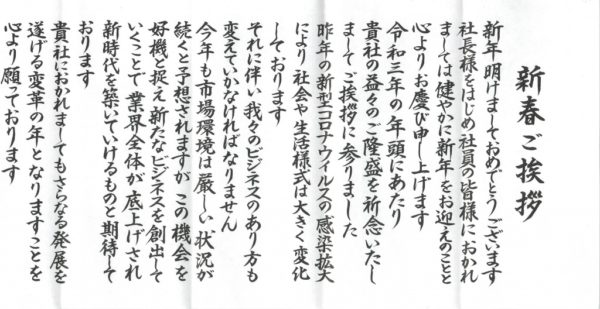 新春ご挨拶
新年 明けましておめでとうございます
社長様をはじめ社員の皆様におかれ
ましては健やかに新年をお迎えのことと
心よりお慶び申し上げます
令和三年の年頭にあたり
貴社の益々のご隆盛を祈念いたし
ましてご挨拶に参りました
昨年の新型コロナウイルスの感染拡大
により社会や生活様式は大きく変化
しております
それに伴い我々のビジネスのあり方も
変えていかなければなりません
今年も市場環境は厳しい状況が
続くと予想されますが この機会を
好機と捉え新たなビジネスを創出して
いくことで 業界全体が底上げされ
新時代を築いていけるものと期待して
おります
貴社におかれましてもさらなる発展を
遂げる変革の年となりますことを
心より願っております